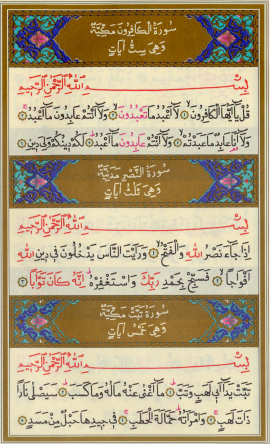 سورة الكافرون مكية
وهي ست آيات
بسم الله الرحمن الرحيم
قل يا أيها الكافرون لا أعبد ما تعبدون ولا أنتم عابدون ما أعبد
ولا أنا عابد ما عبدتم ولا أنتم عابدون ما أعبد لكم دينكم ولي دين
سورة النصر مدنية
وهي ثلث آيات
بسم الله الرحمن الرحيم
إذا جاء نصر الله والفتح ورأيت الناس يدخلون في دين الله
أفواجا فسبح بحمد ربك واستغفره إنه كان توابا
سورة تبت مكية
وهي خمس آيات
بسم الله الرحمن الرحيم
تبت يدا أبي لهب وتب ما أغنى عنه ماله وما كسب سيصلى نارا
ذات لهب وامرأته حمالة الحطب في جيدها حبل من مسد